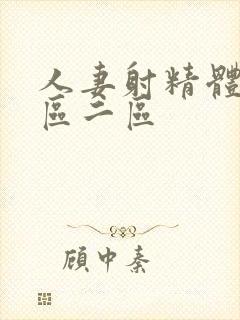 人妻射精體
區二區
顾中秦